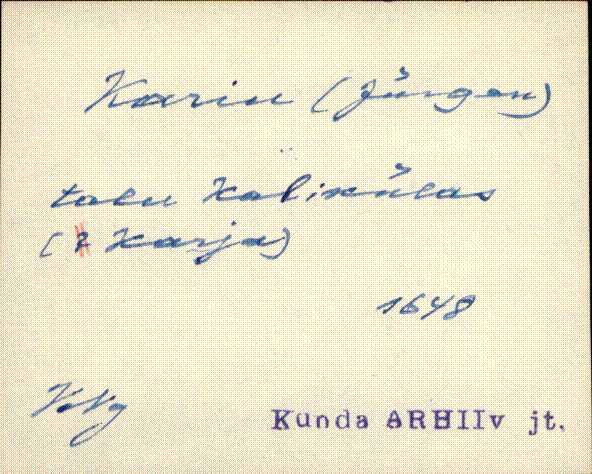 Karin (Jürgen)
talu Kalikülas
(? Karja)
1648
VNg
Kunda ARHIIv jt.